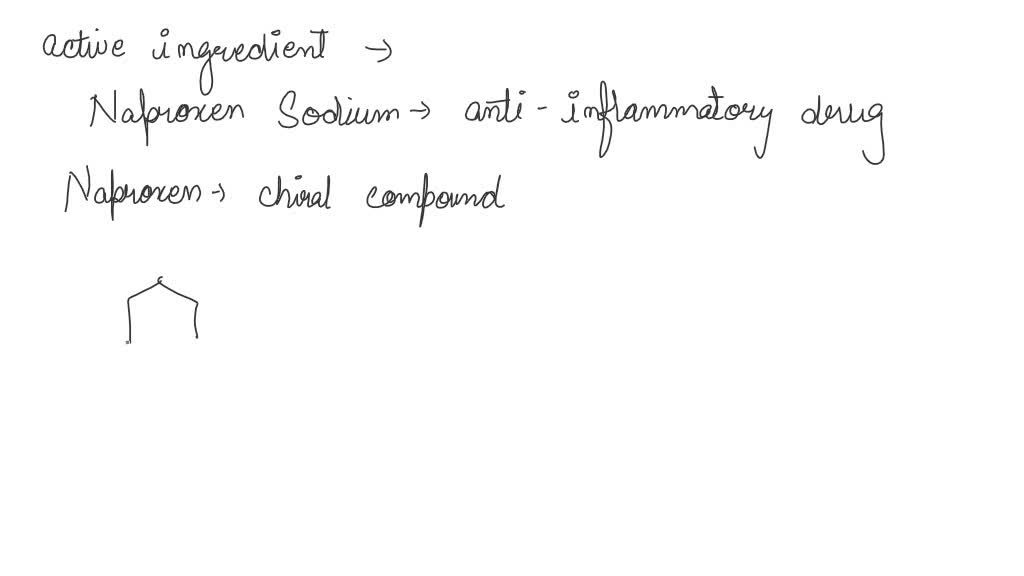 active ingredient →
Naproxen Sodium → anti-inflammatory drug
Naproxen → chiral compound